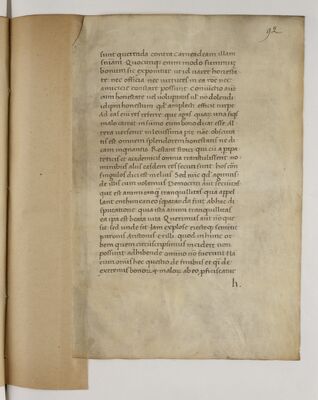 92
sunt quaerenda contra carneadeam illam
sniani. Quocunq; enim modo summum
bonum sic exponitur ut id vacet honesta
te nec officia nec virtutes in ea ratione nec
amicitiae constare possunt. Coniunctio autem
cum honestate vel voluptatis vel non dolendi
id ipsum honestum quod amplecti vult efficit turpe
Ad eas enim res referre quae agas quarum una si quis
malo careat in summo eum bono dicat esse. Al
tera versetur in levissima parte naturae obscura
tis est omnem splendorem honestatis ne di
cam inquinantis. Restant stoici qui cum a peripa
teticis et academicis omnia transtulissent no
minibus aliis easdem res secuti sunt. hos contra
singulos dici est melius. Sed nunc quod agimus
de illis cum volemus. Democriti autem securitas
quae est animi tanquam tranquillitas quam appel
lant
separanda fuit ab hac di
sputatione quia ista animi tranquillitas
ea ipsa est beata vita. Quaerimus autem non quae
sit sed unde sit. Iam explosae eiectaeq; sententiae
pirronis Aristonis erilli quod in hunc or
bem quem circumscripsimus incidere non
possunt adhibendae omnino non fuerunt Nam
cum omnis haec quaestio de finibus et quasi de
extremis bonorum et malorum ab eo proficiscatur
h.